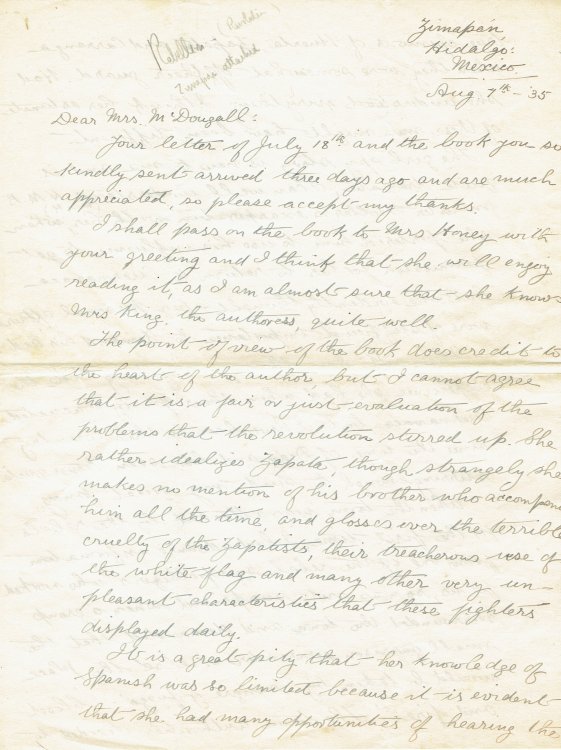 (Revolution)
Zimapan attached
Zimapán
Hidalgo:
Mexico
Aug 7th - 35
Dear Mrs. McDougall:
Your letter of July 18th and the book you so
kindly sent arrived three days ago and are much
appreciated, so please accept my thanks.
I shall pass on the book to Mrs Honey with
your greeting and I think that she will enjoy
reading it, as I am almost sure that she knows
Mrs King, the authoress, quite well.
The point of view of the book does credit to
the heart of the author, but I cannot agree
that it is a fair or just evaluation of the
problems that the revolution stirred up. She
rather idealizes Zapata, though strangely she
makes no mention of his brother who accompan
him all the time, and glosses over the terrible
cruelty of the Zapatists, their treacherous use of
the white flag and many other very un-
pleasant characteristics that these fighters
displayed daily.
It is a great pity that her knowledge of
Spanish was so limited because it is evident
that she had many opportunities of hearing the